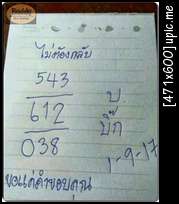 ไม่ต้องกลับ
543
612 บ.
038 บิ๊ก
1-9-17
ขอแค่คำขอบคุณ
[471x600] upic.me